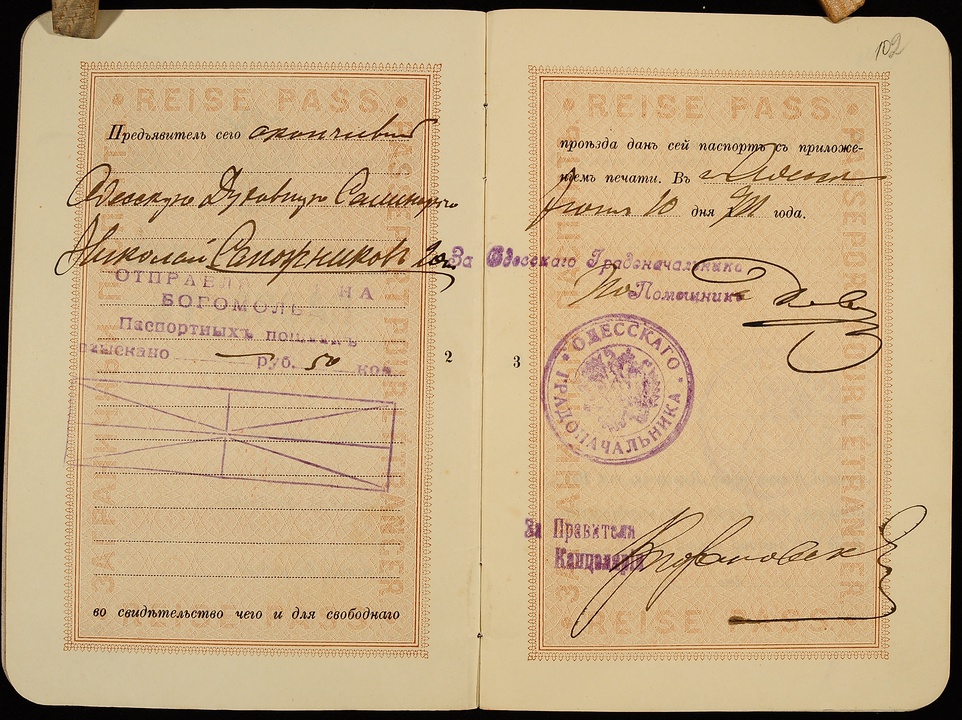 REISE PASS
Предъявитель сего окончивший
Одесскую Духовную Семинарію
Николай Сапожниковъ
ОТПРАВЛ НА
БОГОМОЛЬ
Паспортныхъ пошлинъ
взыскано — руб. 50 коп.
во свидѣтельство чего и для свободнаго
ЗА ГРАНИЦУ
PASSEPORT POUR L'ÉTRANGER
2
102
REISE PASS
проѣзда данъ сей паспортъ съ приложе-
ніемъ печати. Въ г. Одессѣ
10 дня года.
За Одесскаго Градоначальника
Помощникъ
ОДЕССКАГО ГРАДОНАЧАЛЬНИКА
3
За Правителя
Канцеляріи
REISE PASS
PASSEPORT POUR L'ÉTRANGER